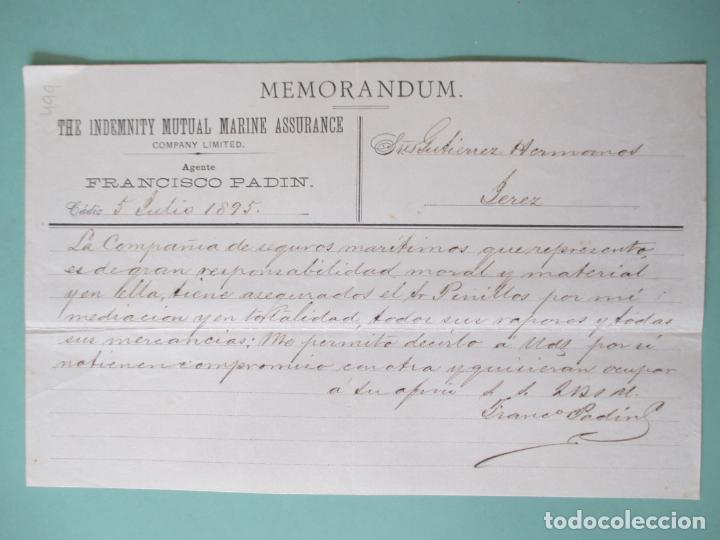 499
MEMORANDUM.
THE INDEMNITY MUTUAL MARINE ASSURANCE
COMPANY LIMITED.
Agente
FRANCISCO PADIN.
Cádiz 5 Julio 1895.
Sres Gutierrez Hermanos
Jerez
La Compañia de seguros marítimos que represento
es de gran responsabilidad moral y material
y en ella, tiene asegurados el Sr Pinillos por mi
mediacion y en totalidad, todos sus vapores y todas
sus mercancias; Me permito decirlo a Uds por si
no tienen compromiso con otra y quisieran ocupar
á su afmo S. S. Q B S M.
Franco Padin
todocoleccion
todocoleccion.net